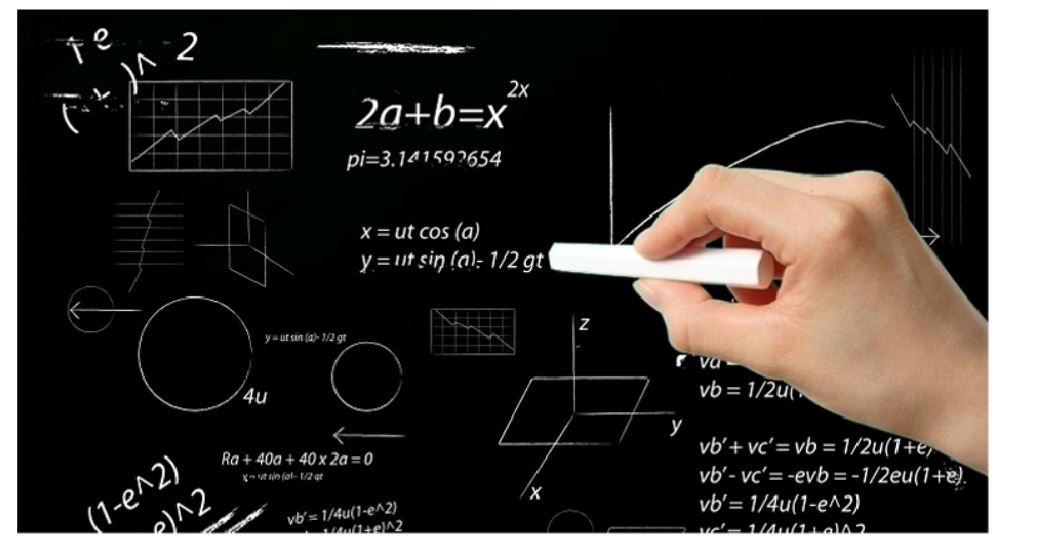 )^ 2
2a+b=x^2x
pi=3.141592654
x = ut cos (a)
y = ut sin (a)- 1/2 gt
y = ut sin (a)- 1/2 gt
4u
z
y
x
vb = 1/2u(
Ra + 40a + 40 x 2a = 0
y = ut sin (a)- 1/2 gt
vb' + vc' = vb = 1/2u(1+e)
vb' - vc' = -evb = -1/2eu(1+e).
vb' = 1/4u(1-e^2)
vc' = 1/4u(1+e)^2
(1-e^2)
e)^2
vb' = 1/4u(1-e^2)
1/4u(1+e)^2